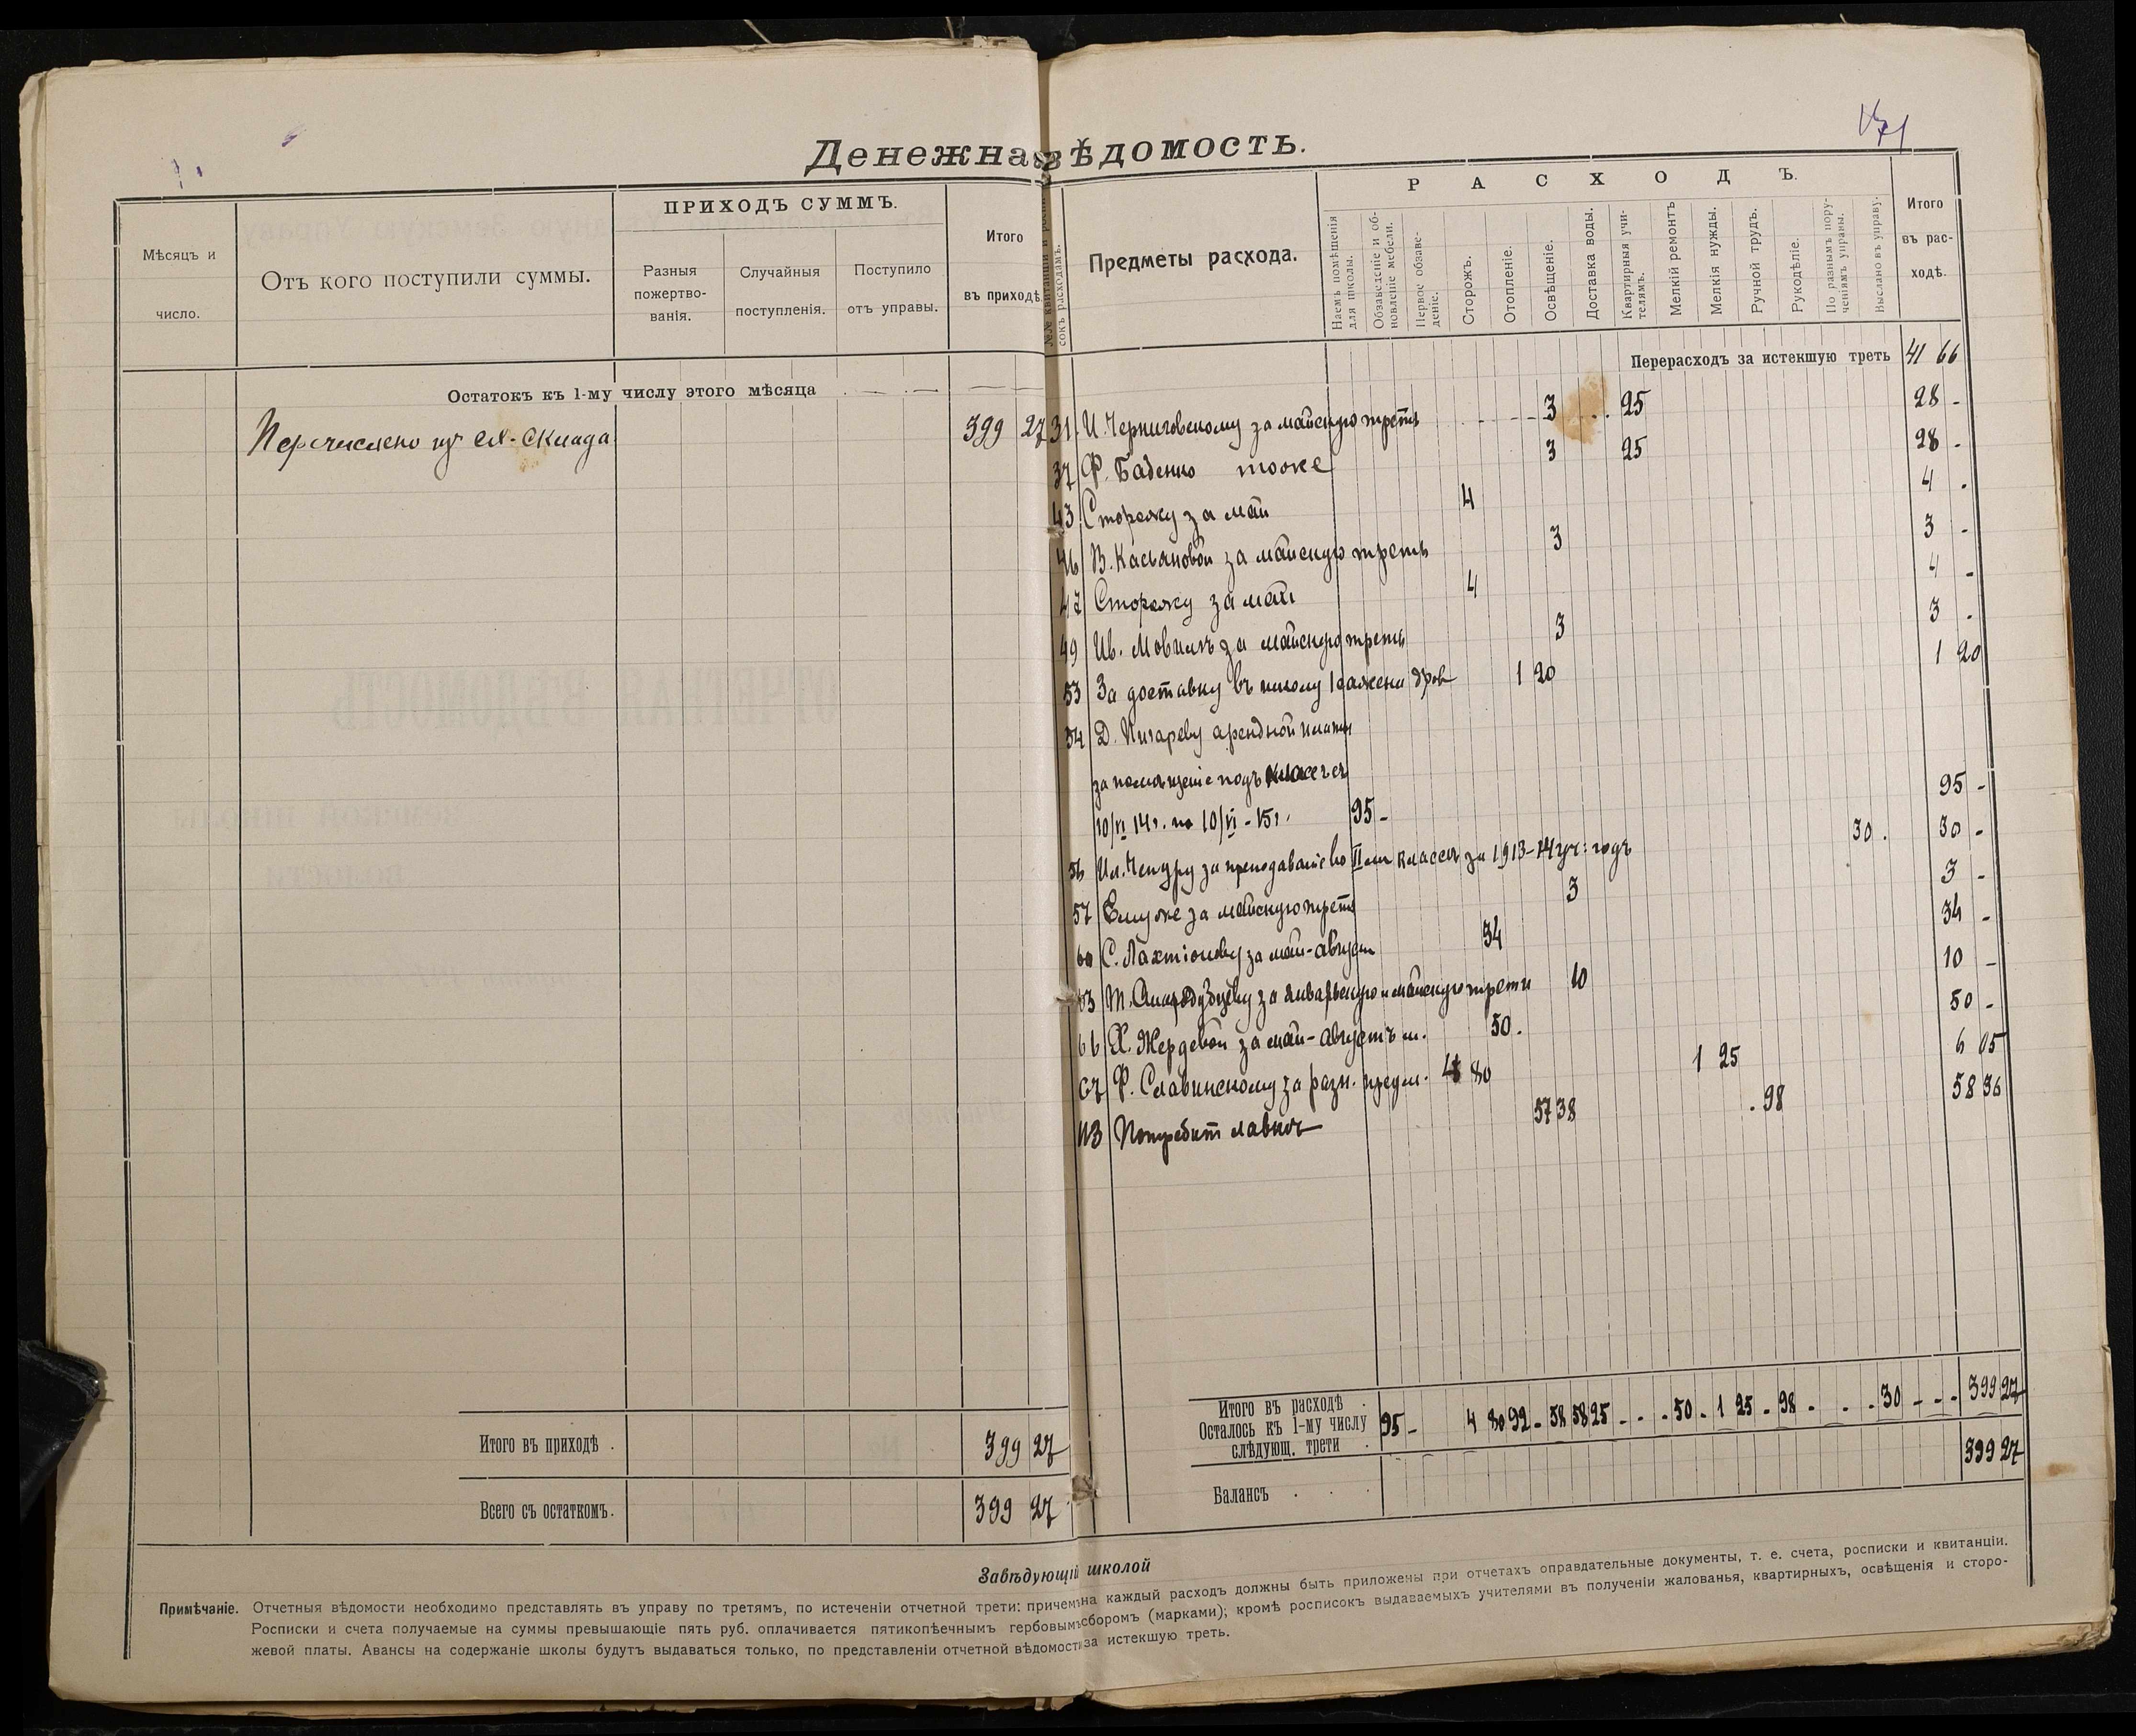 Денежная вѣдомость.
Мѣсяцъ и число.
Отъ кого поступили суммы.
ПРИХОДЪ СУММЪ.
Разныя пожертво-
ванія.
Случайныя поступленія.
Поступило отъ управы.
Итого въ приходѣ
Остатокъ къ 1-му числу этого мѣсяца
Перечислено изъ скл. 399 27
Итого въ приходѣ . 399 27
Всего съ остаткомъ. 399 27
сокъ расходамъ.
Предметы расхода.
РАСХОДЪ.
Наемъ помѣщенія для школы.
Обзаведеніе и об-
новленіе мебели.
Первое обзаве-
деніе.
Сторожъ.
Отопленіе.
Освѣщеніе.
Доставка воды.
Квартирныя учи-
телямъ.
Мелкій ремонтъ
Мелкія нужды.
Ручной трудъ.
Рукодѣліе.
По разнымъ пору-
ченіямъ управы.
Выслано въ управу.
Итого въ рас-
ходѣ.
Перерасходъ за истекшую треть 41 66
31 И. Черниговскому за майскую треть 3 25 28 -
37 Ф. Бабенко тоже 3 25 28 -
43 Сторожу за май 4 4 -
46 В. Касьяновой за майскую треть 3 3 -
47 Сторожу за май 4 4 -
49 Ив. за майскую треть 3 3 -
53 За доставку въ школу 1 сажени дров 1 20 1 20
54 Д. Писареву арендной платы
за помѣщеніе подъ
10/VI 14г. по 10/VI - 15г. 95 - 95 -
56 Ил. за преподаваніе во II классѣ за 1913-14 уч: годъ 30 . 30 -
57 Ему же за майскую треть 3 3 -
60 С. Лахтіонову за май-август 34 34 -
63 за январьскую и майскую трети 10 10 -
66 Х. Жердевой за май-августъ м. 50. 50 -
67 Ф. Славинскому за разн. предм. 4 80 1 25 6 05
113 Потребит лавкѣ 57 38 . 98 58 36
Итого въ расходѣ . 95 - 4 80 92 - 58 58 25 - - . 50 . 1 25 . 98 . . . 30 - - - 399 27
Осталось къ 1-му числу
слѣдующ. трети .
Балансъ . . . 399 27
Завѣдующій школой
Примѣчаніе. Отчетныя вѣдомости необходимо представлять въ управу по третямъ, по истеченіи отчетной трети: причемъ на каждый расходъ должны быть приложены при отчетахъ оправдательные документы, т. е. счета, росписки и квитанціи.
Росписки и счета получаемые на суммы превышающіе пять руб. оплачивается пятикопѣечнымъ гербовымъ сборомъ (марками); кромѣ росписокъ выдаваемыхъ учителями въ полученіи жалованья, квартирныхъ, освѣщенія и сторо-
жевой платы. Авансы на содержаніе школы будутъ выдаваться только, по представленіи отчетной вѣдомости за истекшую треть.